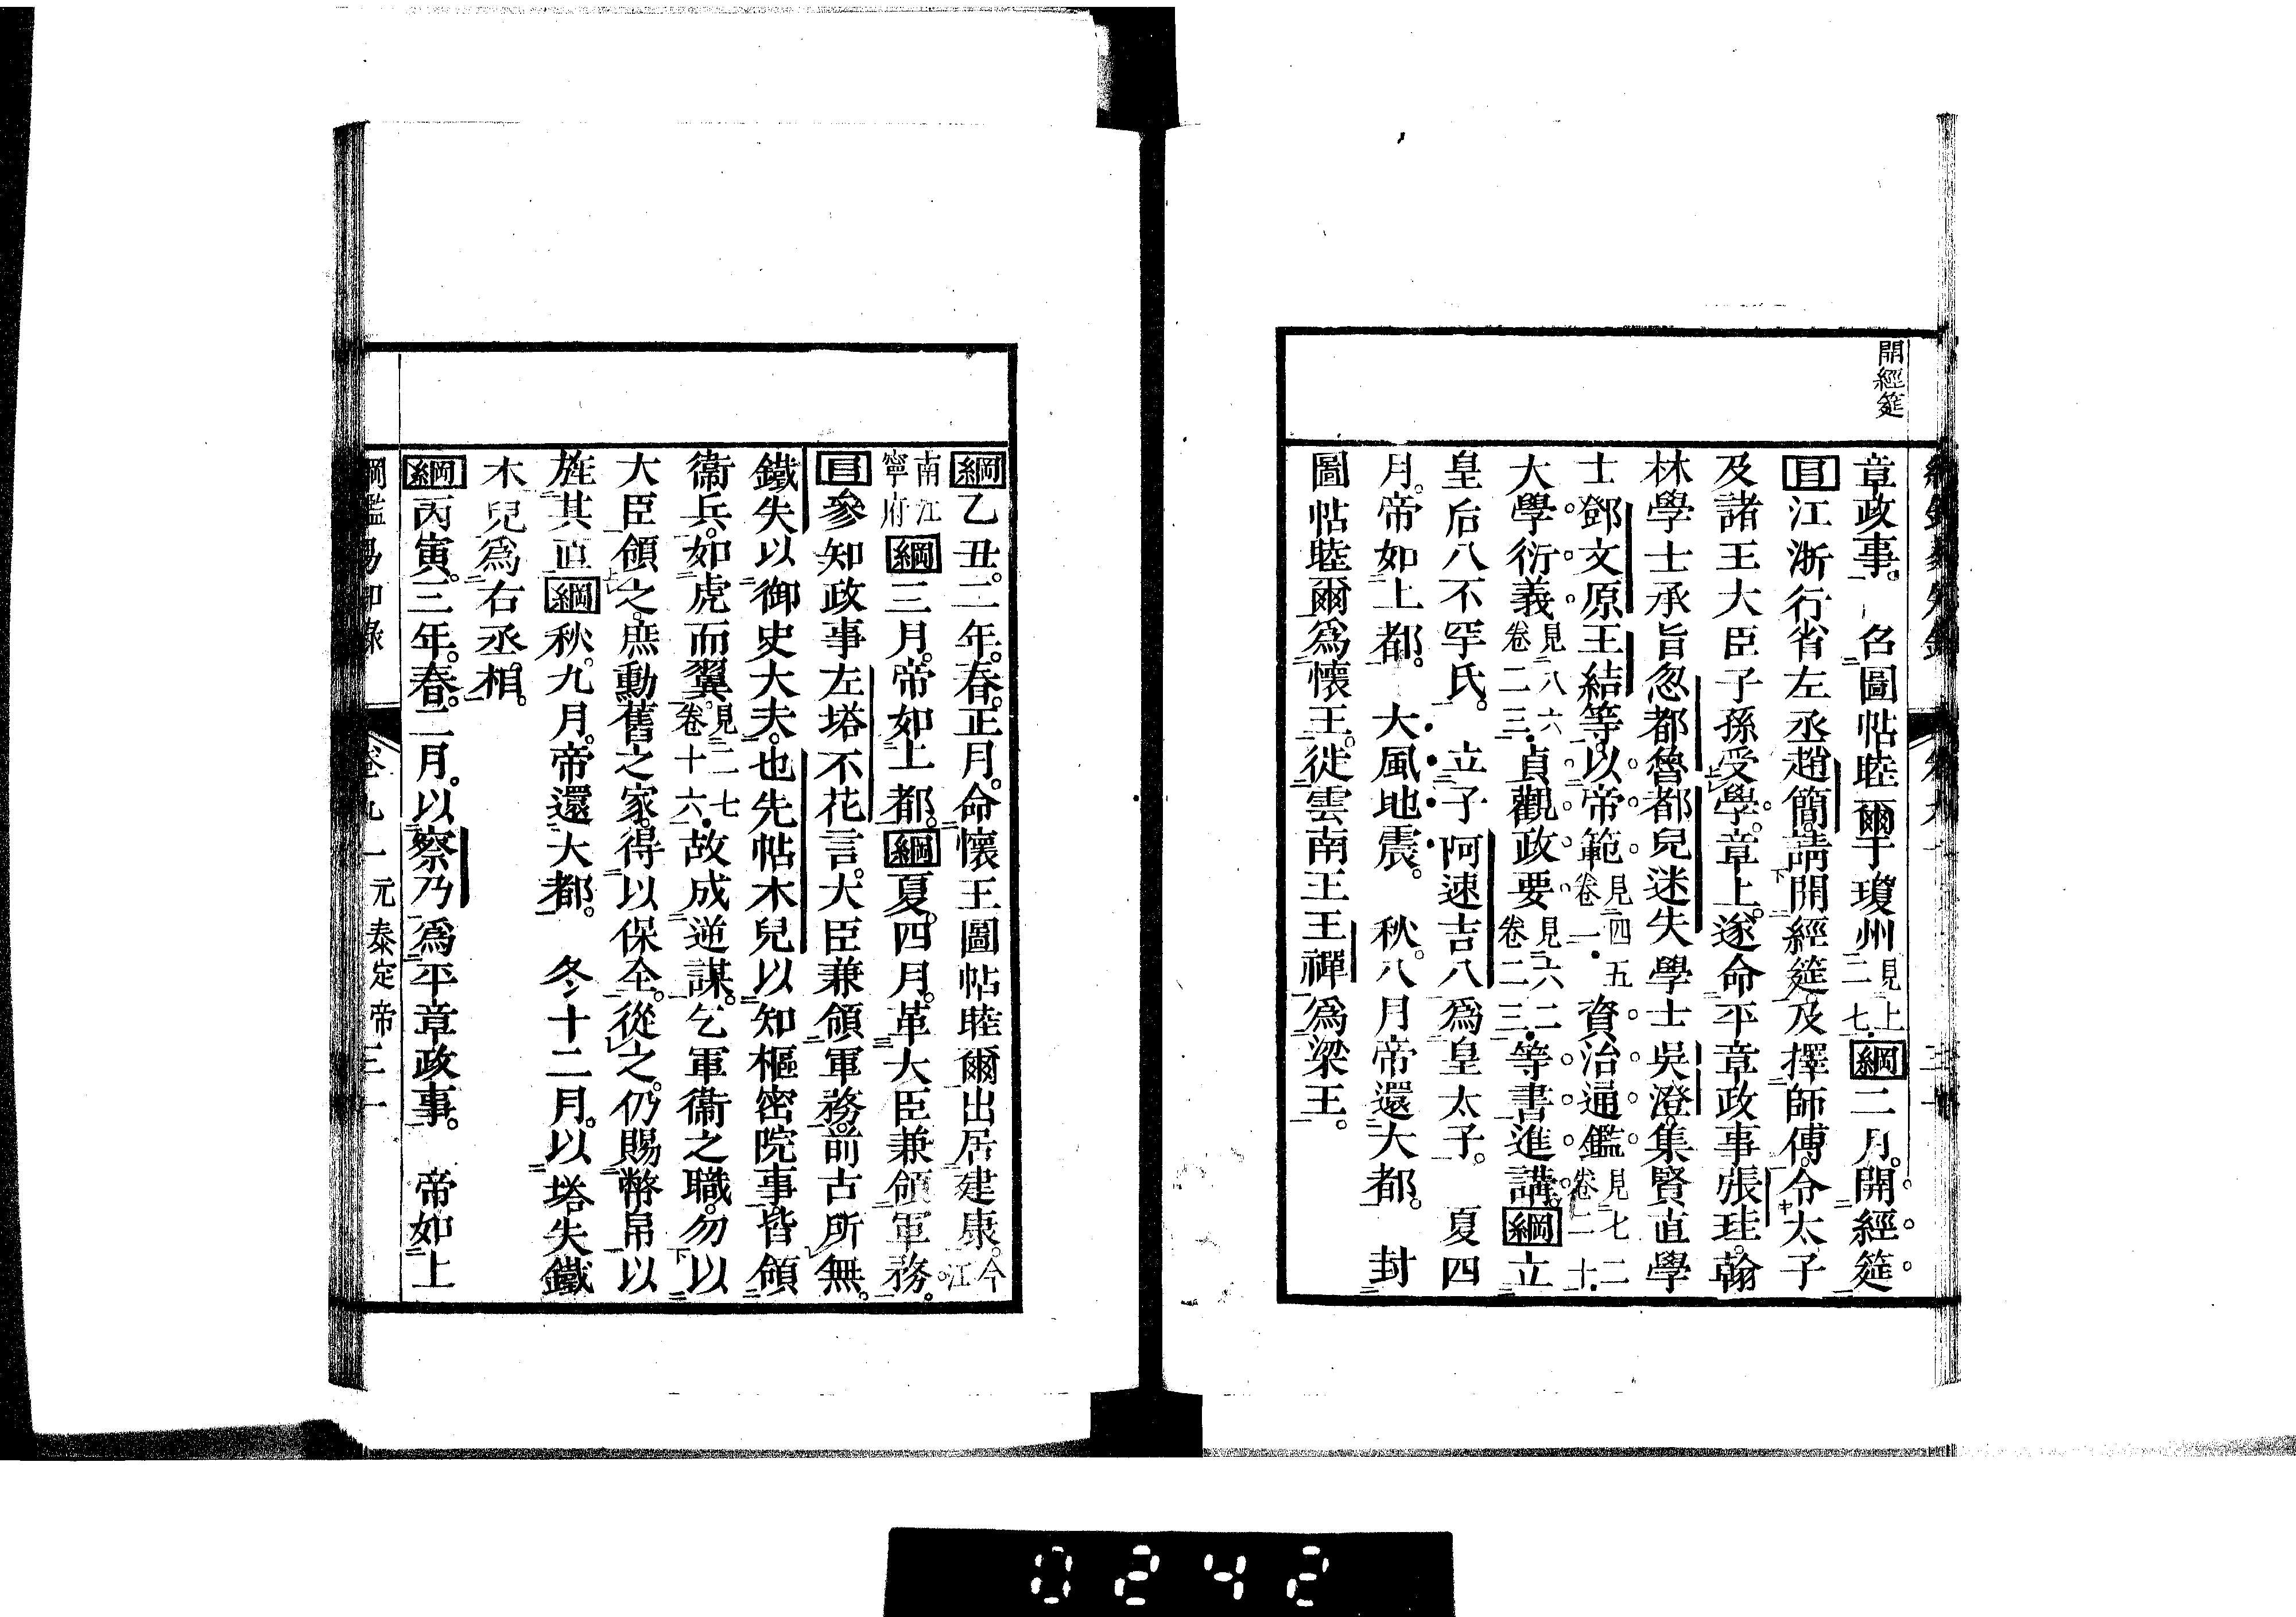 開經筵
章政事。　召圖帖睦爾于瓊州見上二七。綱二月。開經筵
目江浙行省左丞趙簡。請開經筵。及擇師傅。令太子
及諸王大臣子孫受學。章上。遂命平章政事張珪。翰
林學士承旨忽都魯都兒迷失學士吳澄。集賢直學
士鄧文原王結等。以帝範見四五卷一。資治通鑑見七二卷二十。
大學衍義見八六卷二三。貞觀政要見六二卷二三。等書進講。綱立
皇后八不罕氏。　立子阿速吉八爲皇太子。　夏四
月。帝如上都。　大風地震。　秋。八月帝還大都。　封
圖帖睦爾爲懷王。徙雲南王王禪爲梁王。
綱乙丑。二年。春。正月。命懷王圖帖睦爾出居建康。今江
南江寧府綱三月。帝如上都。綱夏。四月。革大臣兼領軍務。
目參知政事左塔不花言。大臣兼領軍務。前古所無。
鐵失以御史大夫。也先帖木兒以知樞密院事皆領
衞兵。如虎而翼。見二七卷十六。故成逆謀。乞軍衞之職。勿以
大臣領之。庶勳舊之家。得以保全。從之。仍賜幣帛以
旌其直綱秋。九月。帝還大都。　冬十二月。以塔失鐵
木兒爲右丞相。
綱丙寅。三年。春。二月。以察乃爲平章政事。　帝如上
綱鑑易知錄　卷九一　元泰定帝　三一
0242